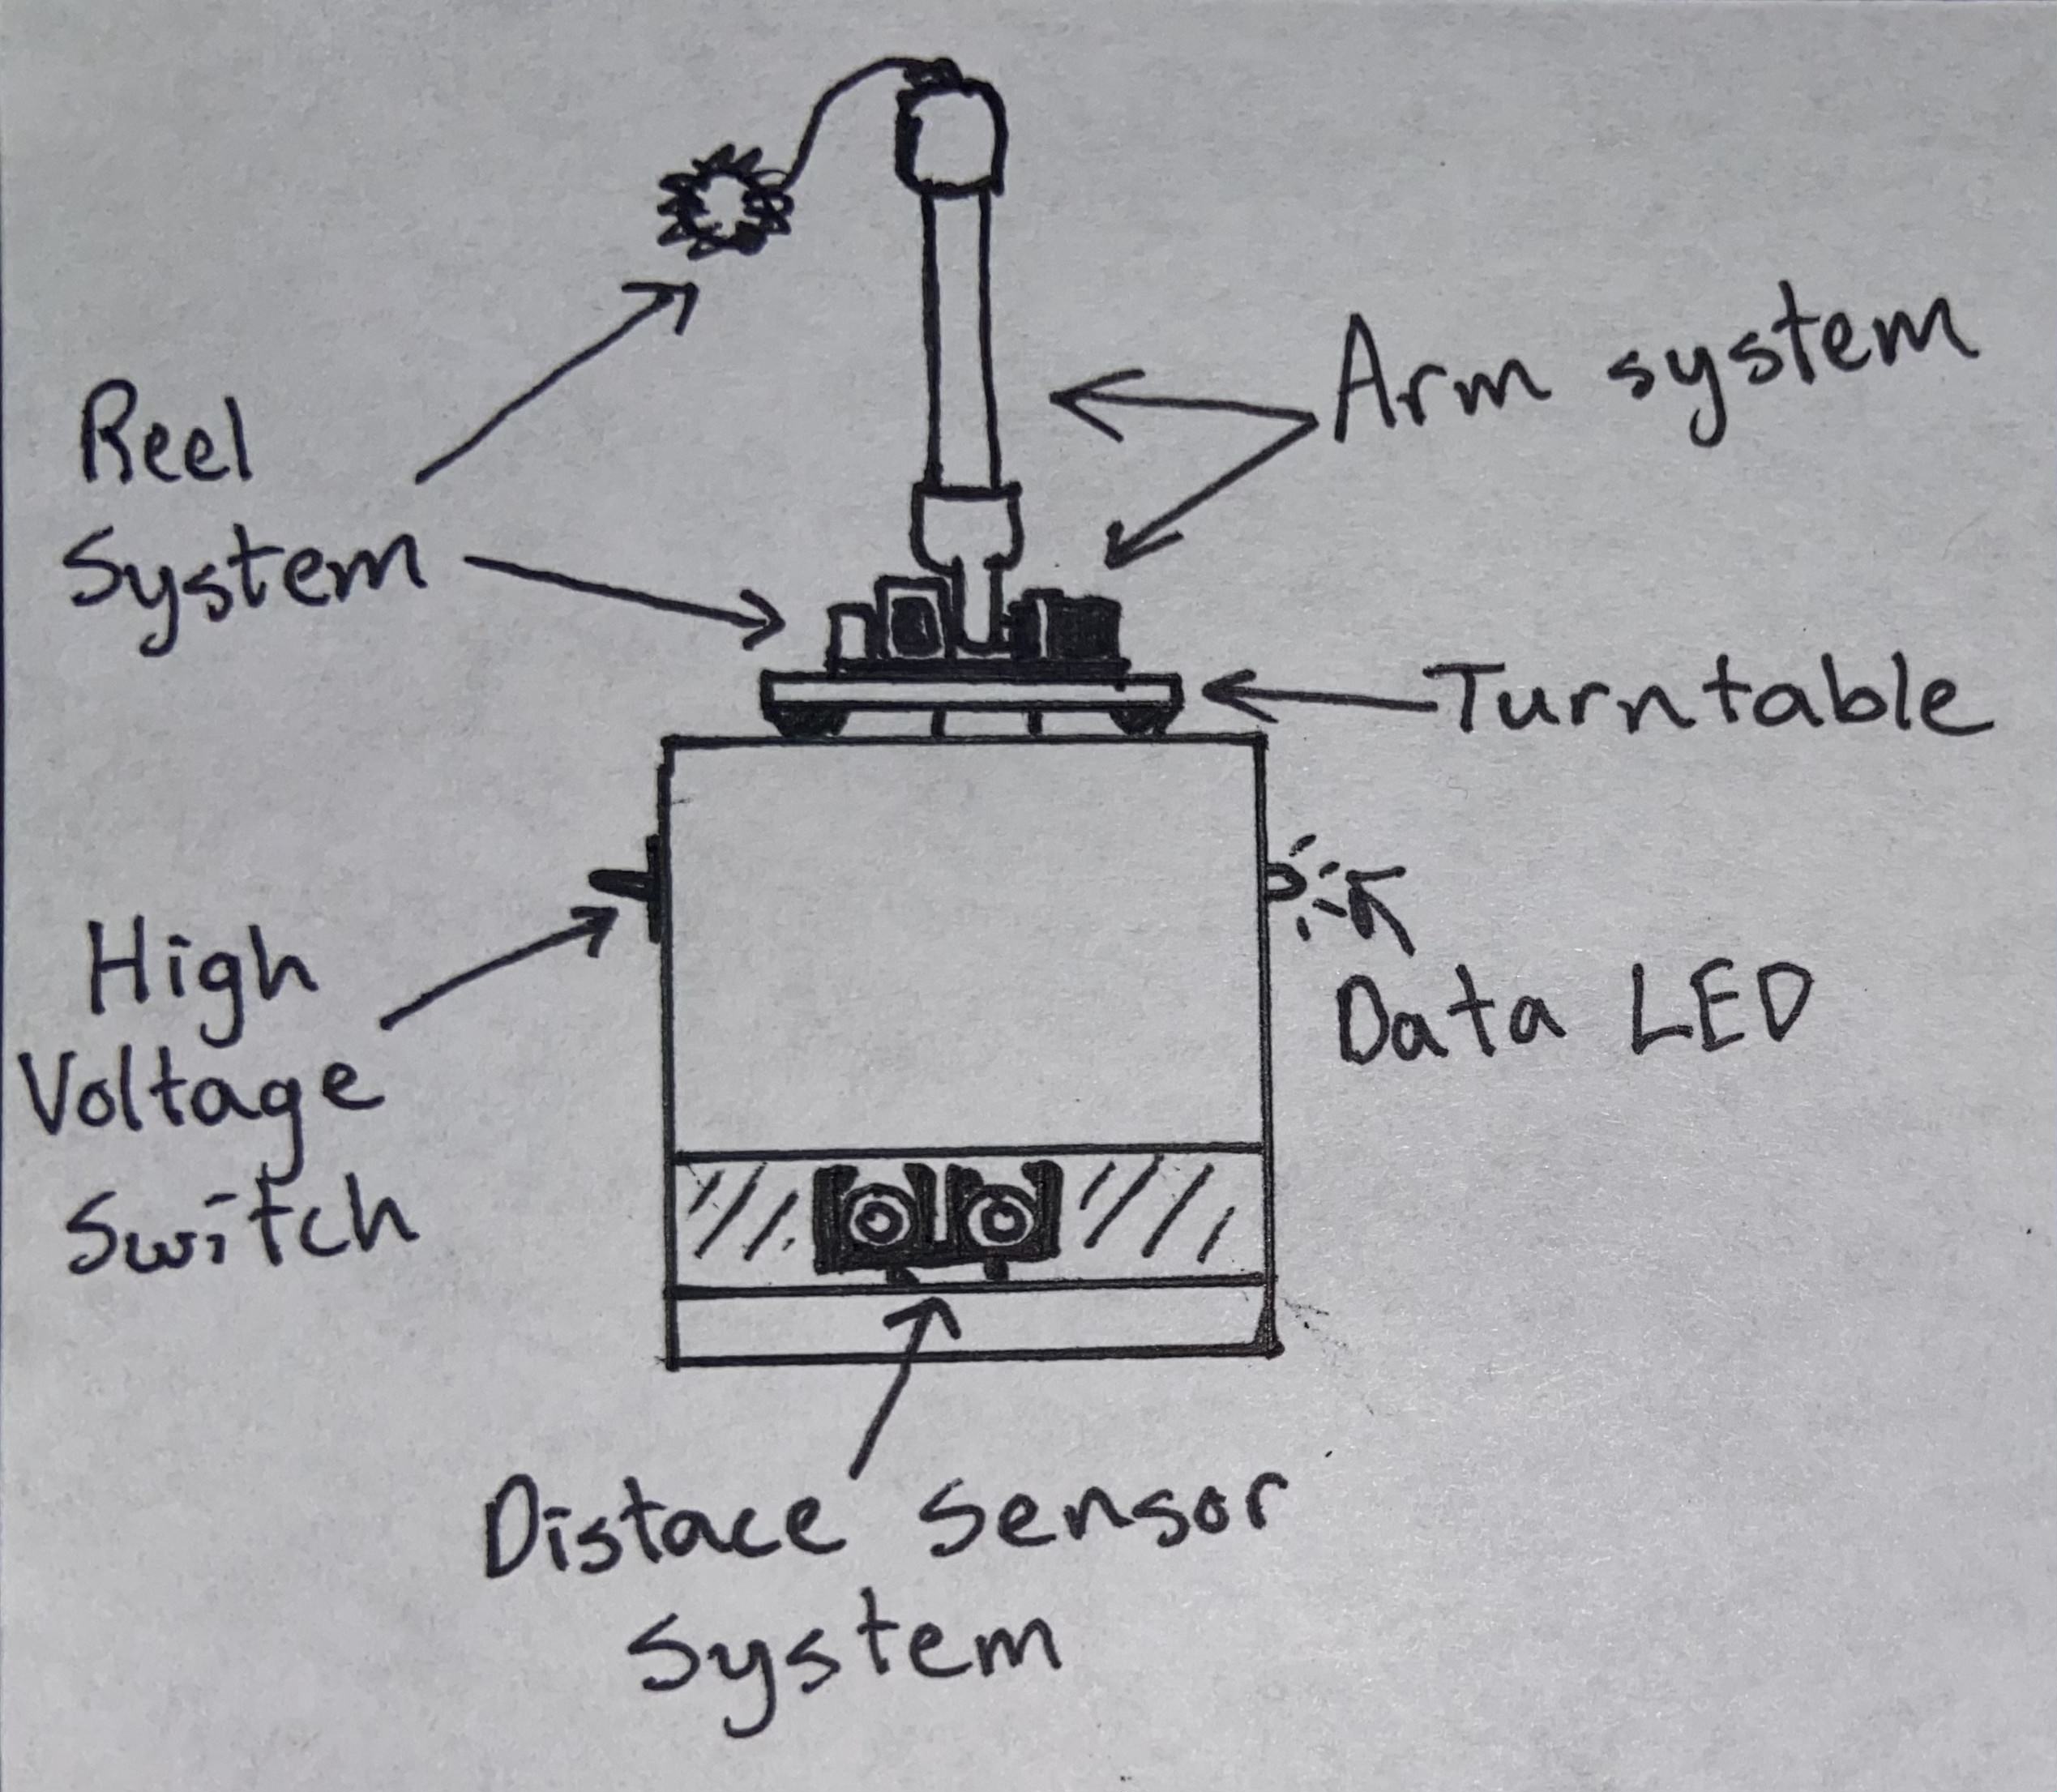 Reel
System
Arm system
Turntable
High
Voltage
Switch
Data LED
Distace sensor
System